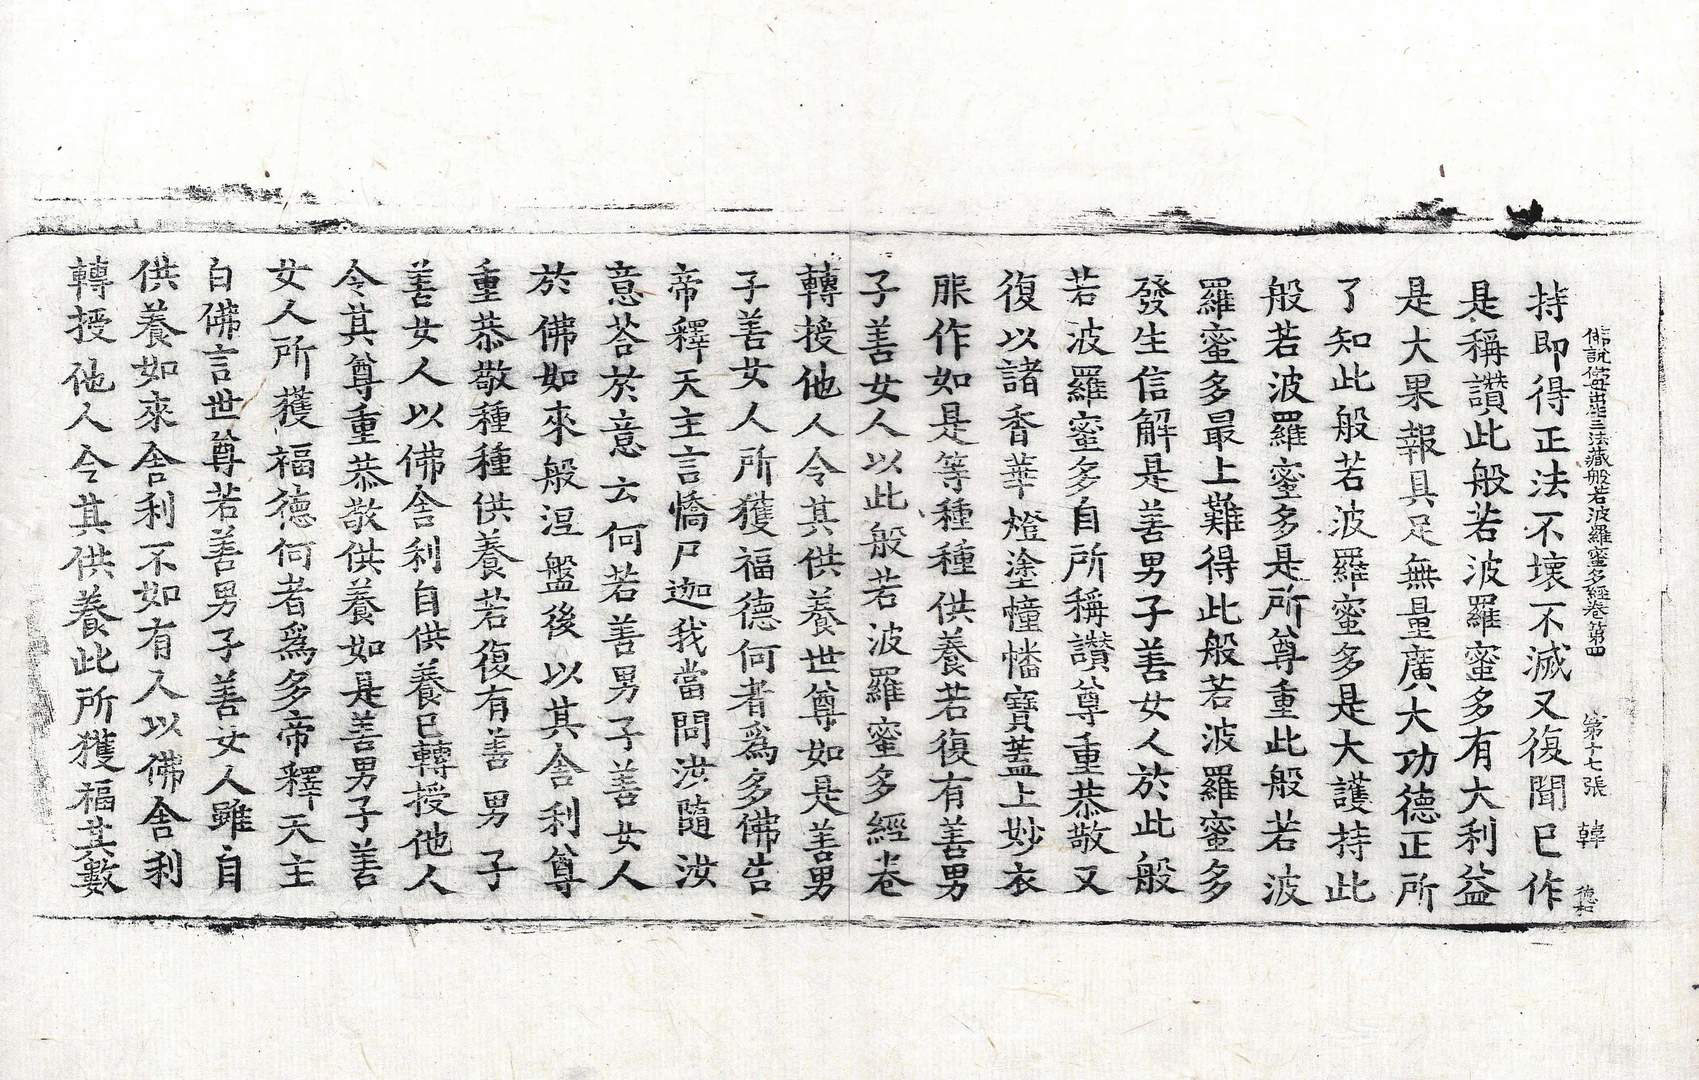 佛說佛母出生三法藏般若波羅蜜多經卷第四 第十七張 韓
持即得正法不壞不滅又復聞已作
是稱讚此般若波羅蜜多有大利益
是大果報具足無量廣大功德正所
了知此般若波羅蜜多是大護持此
般若波羅蜜多是所尊重此般若波
羅蜜多最上難得此般若波羅蜜多
發生信解是善男子善女人於此般
若波羅蜜多自所稱讚尊重恭敬又
復以諸香華燈塗幢幡寶蓋上妙衣
服作如是等種種供養若復有善男
子善女人以此般若波羅蜜多經卷
轉授他人令其供養世尊如是善男
子善女人所獲福德何者爲多佛告
帝釋天主言憍尸迦我當問汝隨汝
意荅於意云何若善男子善女人
於佛如來般涅盤後以其舍利尊
重恭敬種種供養若復有善男子
善女人以佛舍利自供養已轉授他人
令其尊重恭敬供養如是善男子善
女人所獲福德何者爲多帝釋天主
白佛言世尊若善男子善女人雖自
供養如來舍利不如有人以佛舍利
轉授他人令其供養此所獲福其數